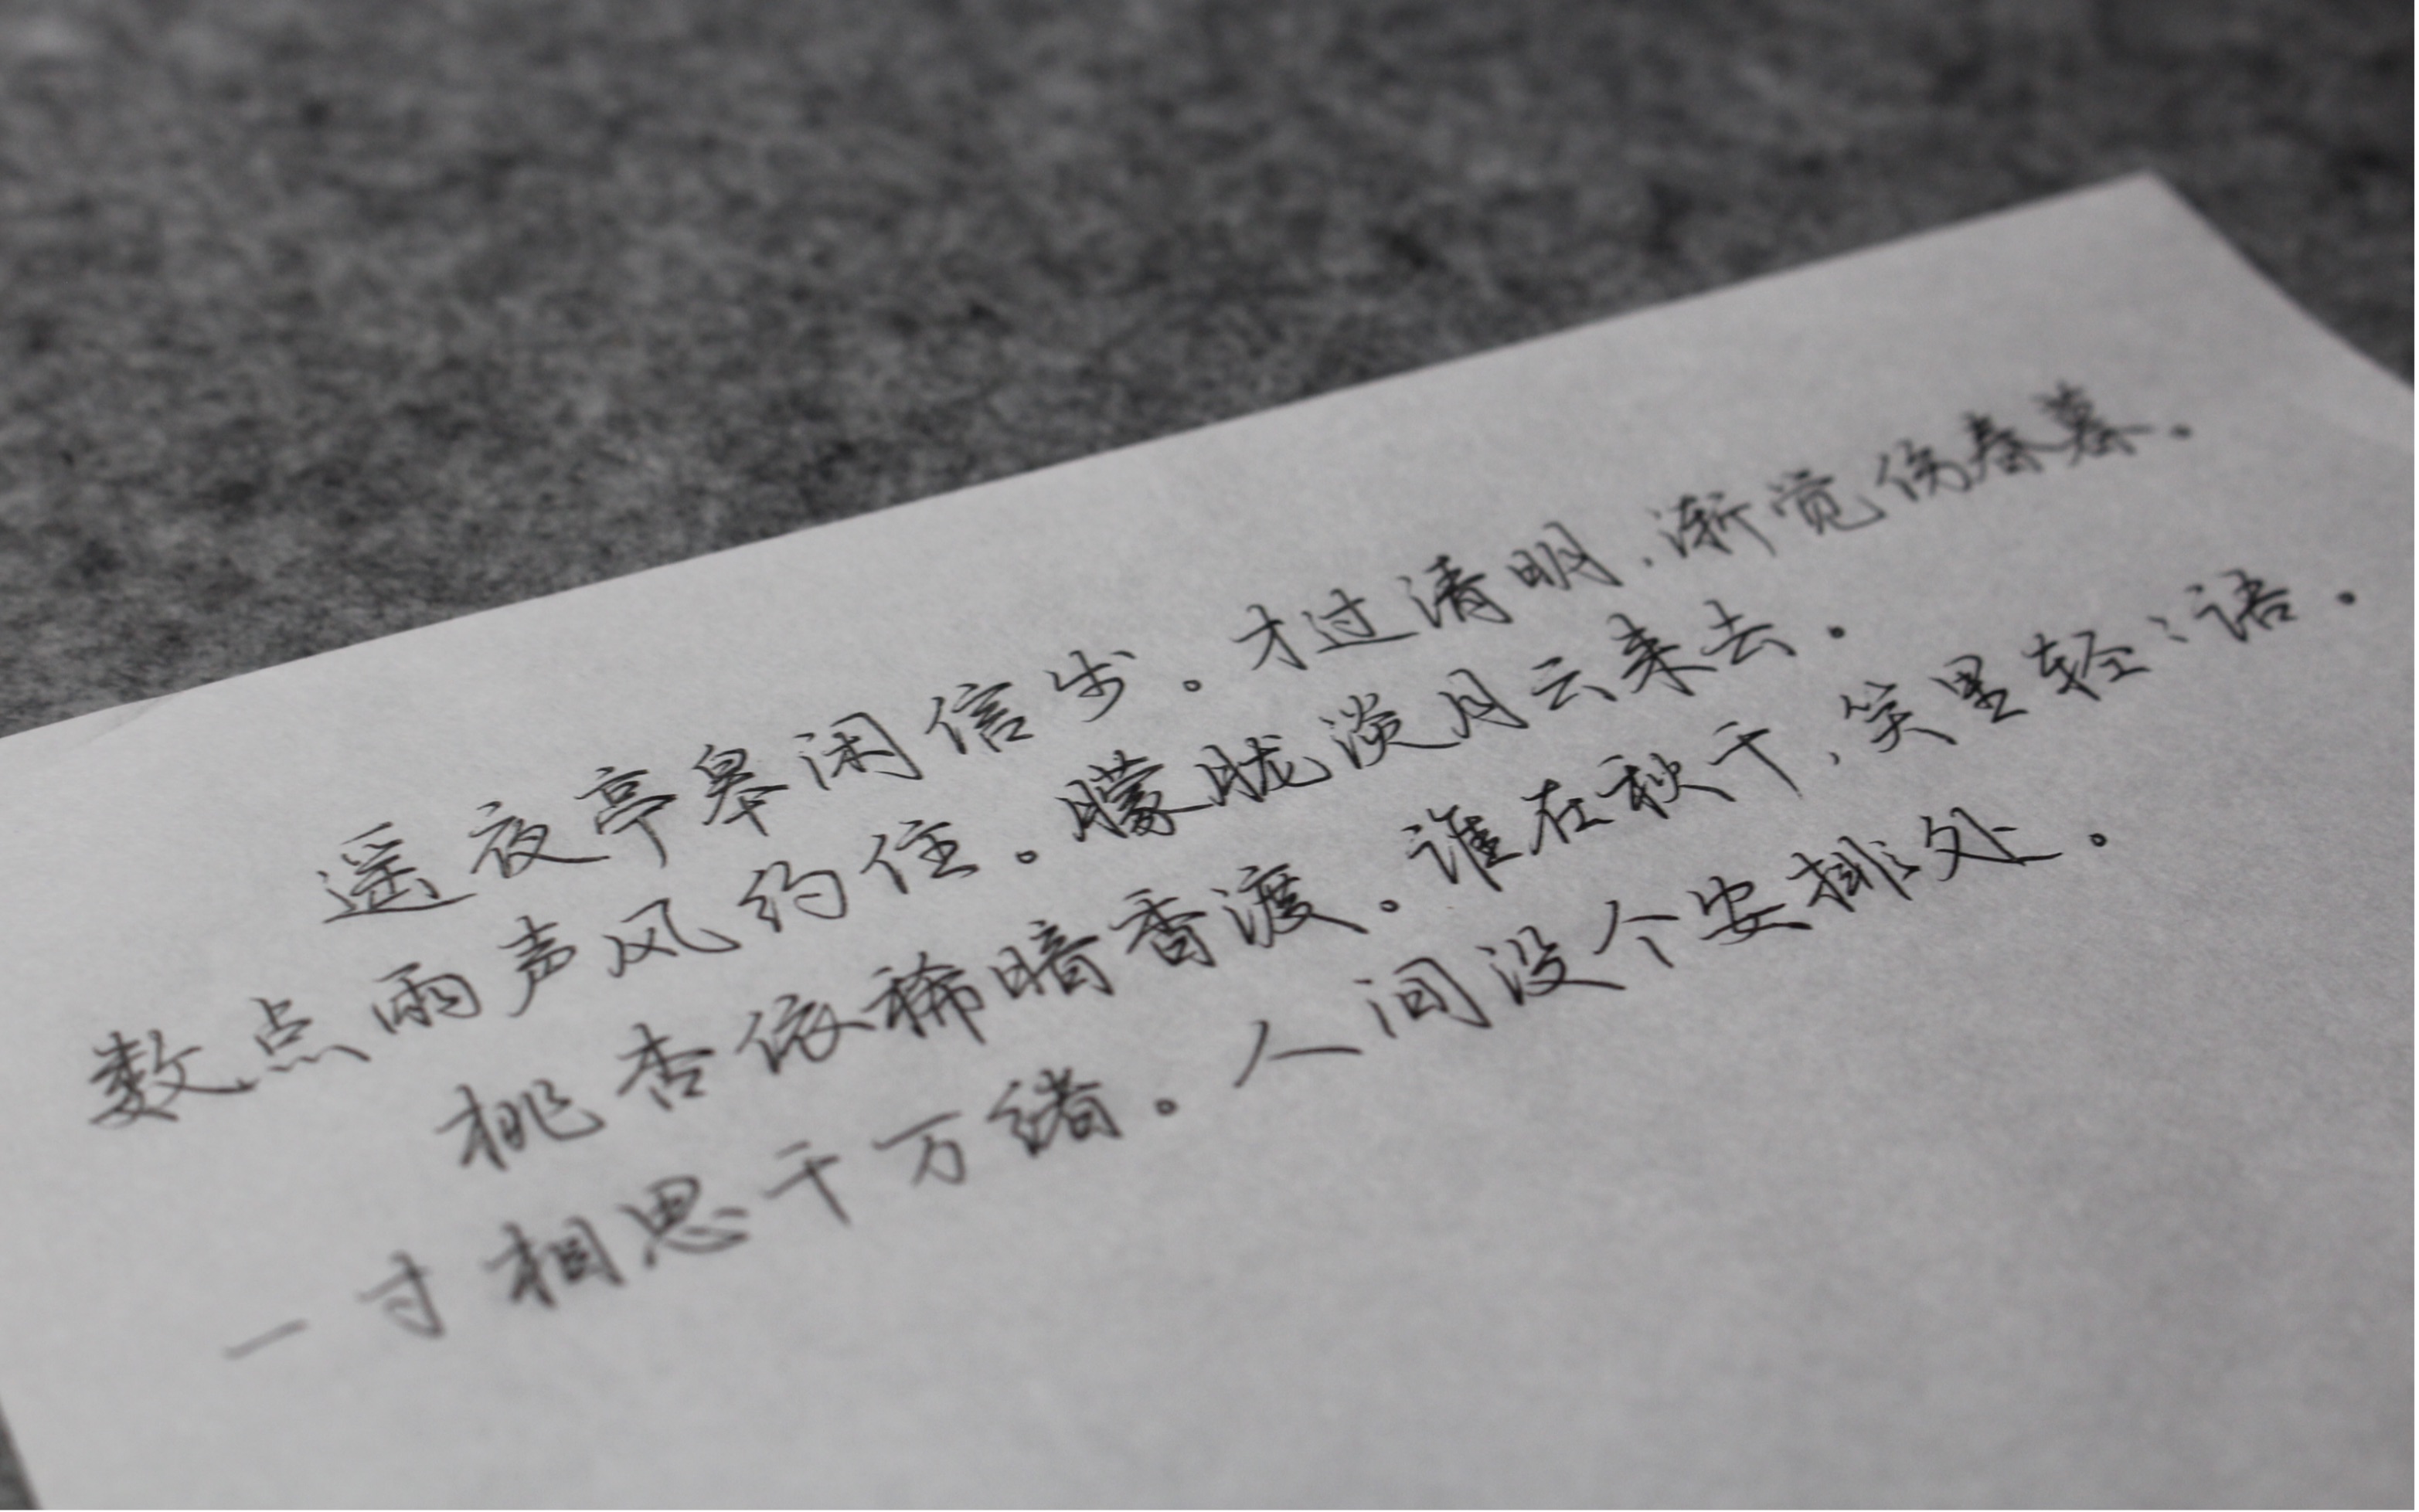 遥夜亭皋闲信步。才过清明，渐觉伤春暮。
数点雨声风约住。朦胧淡月云来去。
桃杏依稀暗香渡。谁在秋千，笑里轻轻语。
一寸相思千万绪。人间没个安排处。